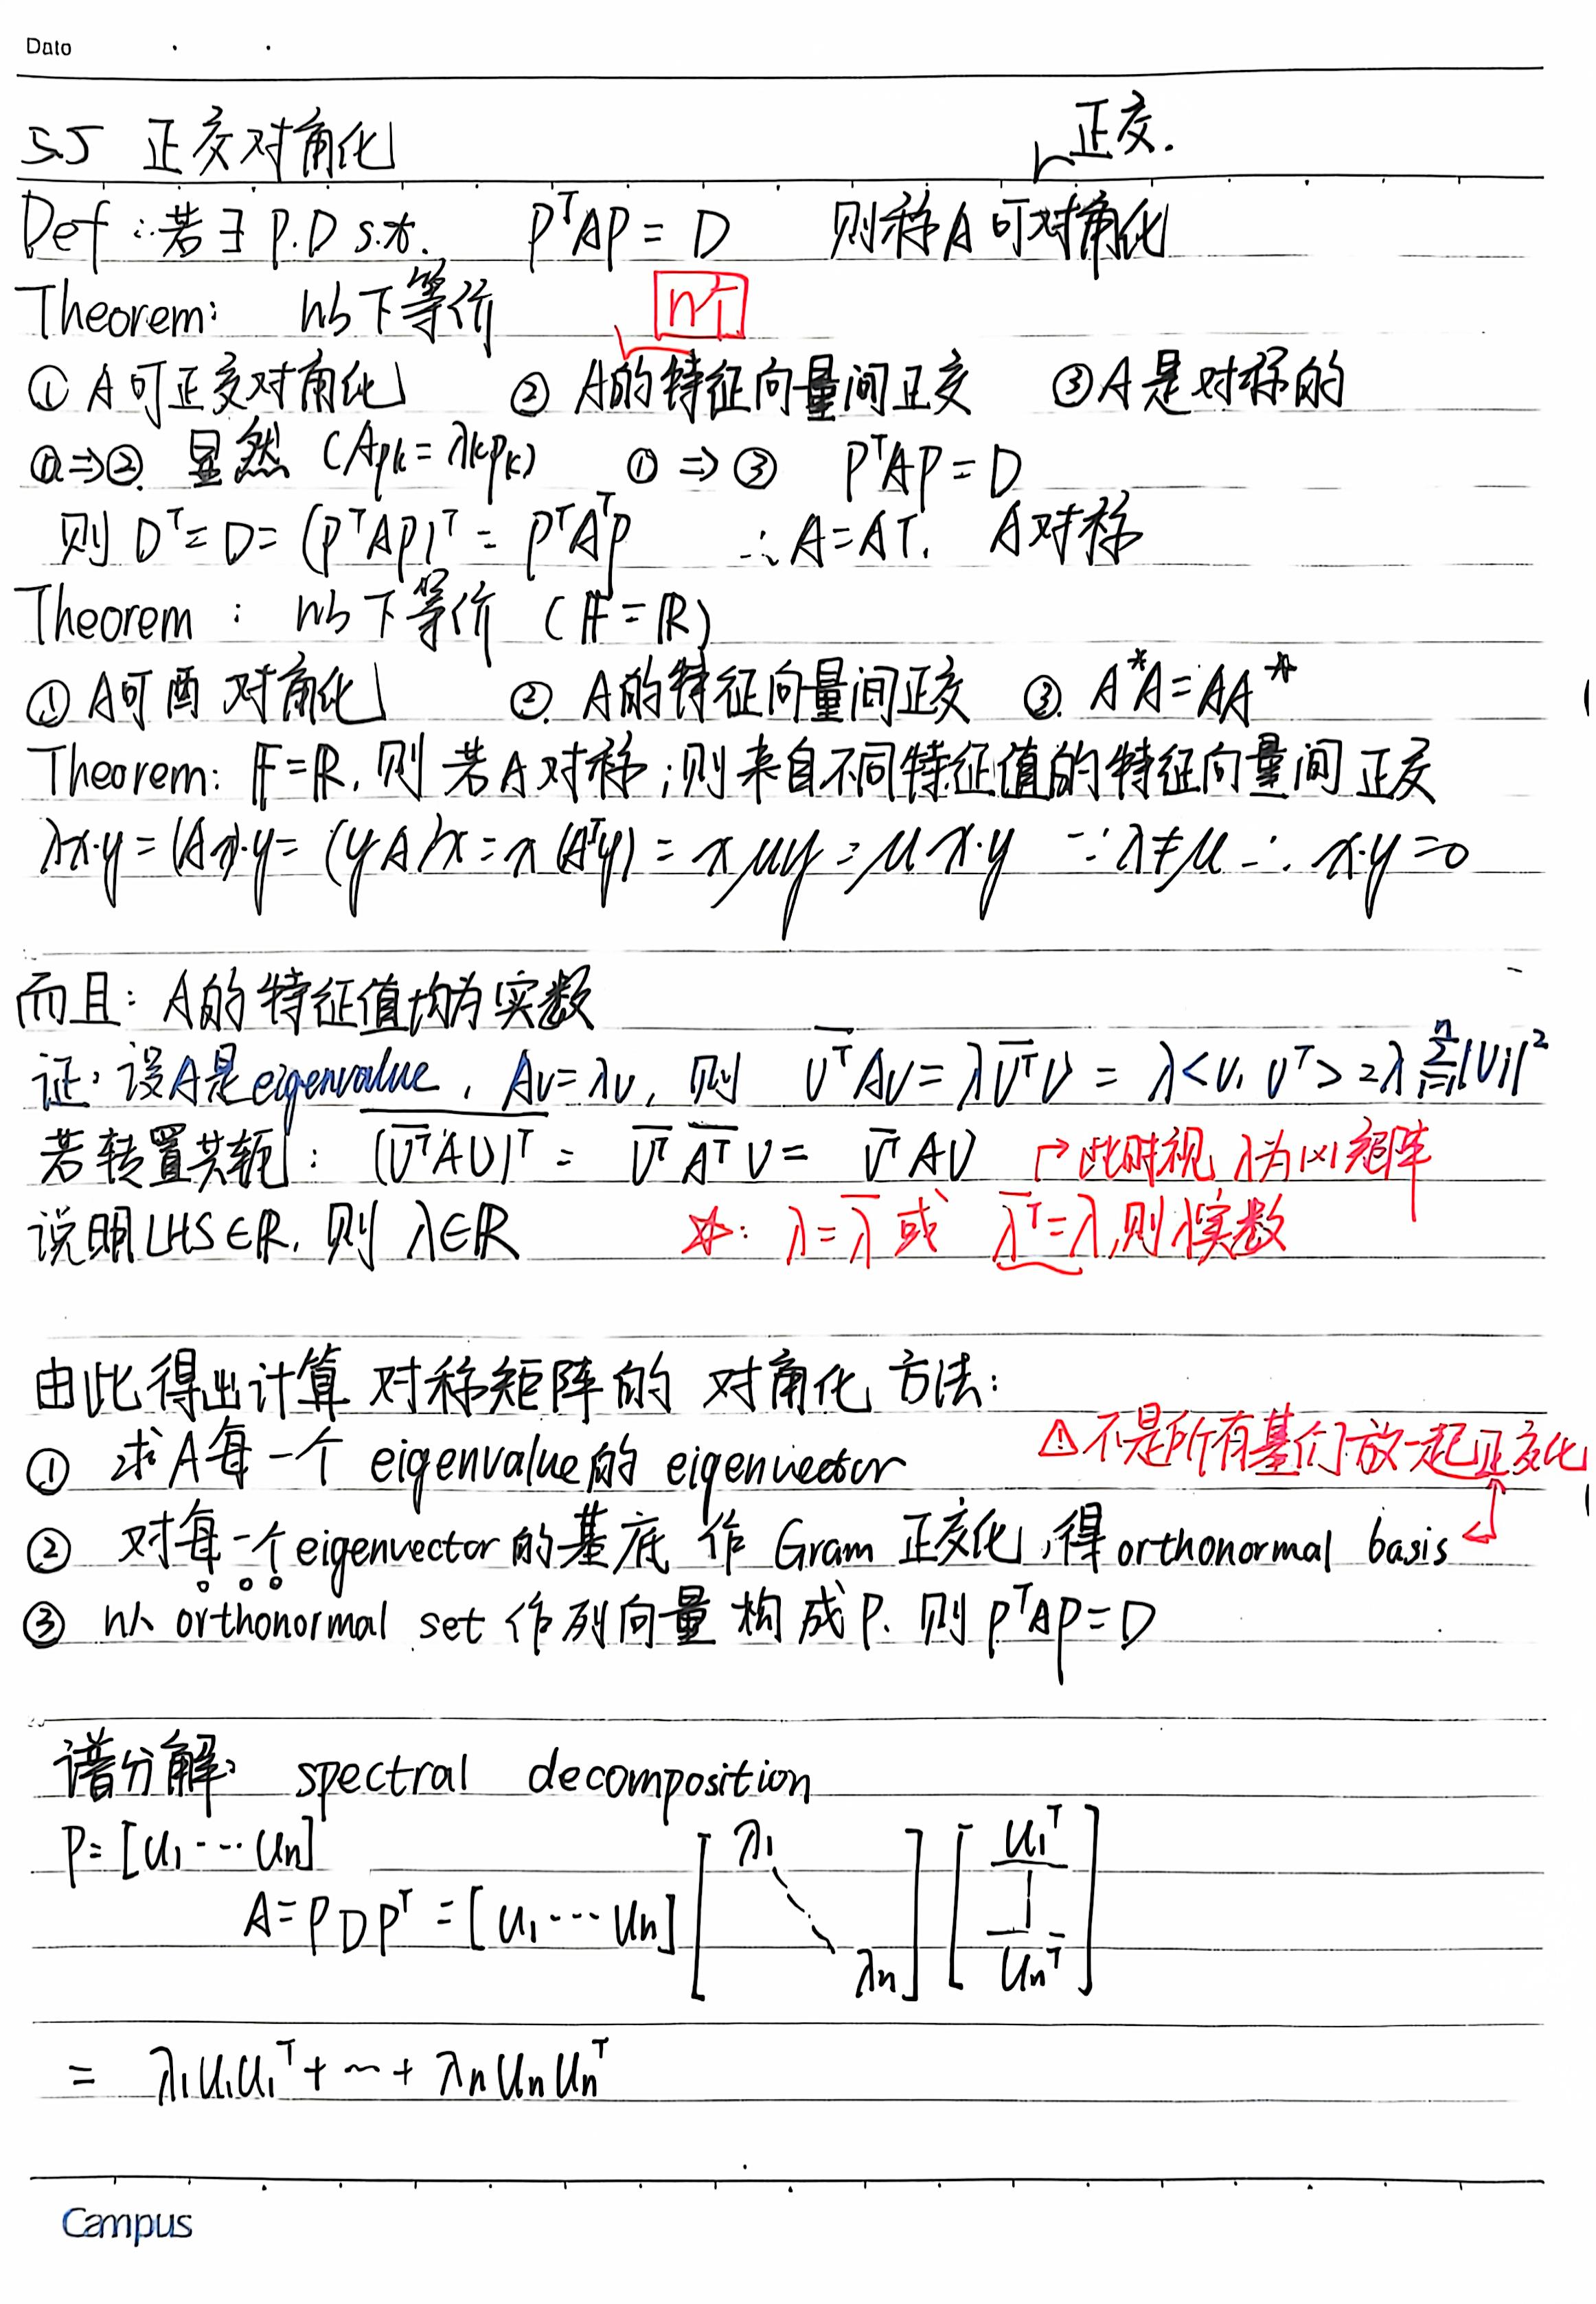 Date
5.5 正交对角化
正交.
Def:若∃ P.D s.t. PᵀAP = D 则称A可对角化
Theorem: 以下等价 n个
① A可正交对角化 ② A的特征向量间正交 ③A是对称的
①⇒② 显然 (Apk = λkpk) ① ⇒ ③ PᵀAP = D
则 Dᵀ = D = (PᵀAP)ᵀ = PᵀAᵀP ∴ A = AT. A对称
Theorem : 以下等价 (𝔽 = ℝ)
① A可酉对角化 ② A的特征向量间正交 ③. A*A = AA*
Theorem: 𝔽=ℝ, 则若A对称;则来自不同特征值的特征向量间正交
λx·y = (Ax)·y = (yA)x = x(Aᵀy) = xμy = μx·y ∵λ≠μ ∴ x·y=0
而且: A的特征值均为实数
证: 设A是eigenvalue, Av=λv, 则 v̅ᵀAv = λv̅ᵀv = λ<v, vᵀ> = λ∑ⁿᵢ₌₁|vi|²
若转置共轭: (v̅ᵀAv)ᵀ = v̅ᵀ A̅ᵀ v = v̅ᵀ Av ↱此时视λ为1×1矩阵
说明LHS∈ℝ, 则 λ∈ℝ ☆: λ=λ̅ 或 λ̅ᵀ=λ,则λ实数
由此得出计算 对称矩阵的 对角化 方法:
① 求A每一个 eigenvalue的 eigenvector ⚠不是所有基们放一起正交化
② 对每一个eigenvector的基底 作 Gram 正交化,得orthonormal basis
③ 以 orthonormal set 作列向量构成P. 则 PᵀAP=D
谱分解: spectral decomposition
P= [u₁ ··· un]
A = PDPᵀ = [u₁ ··· un] [λ₁ ⋱ λn] [u₁ᵀ | unᵀ]
= λ₁u₁u₁ᵀ + ··· + λnununᵀ
Campus